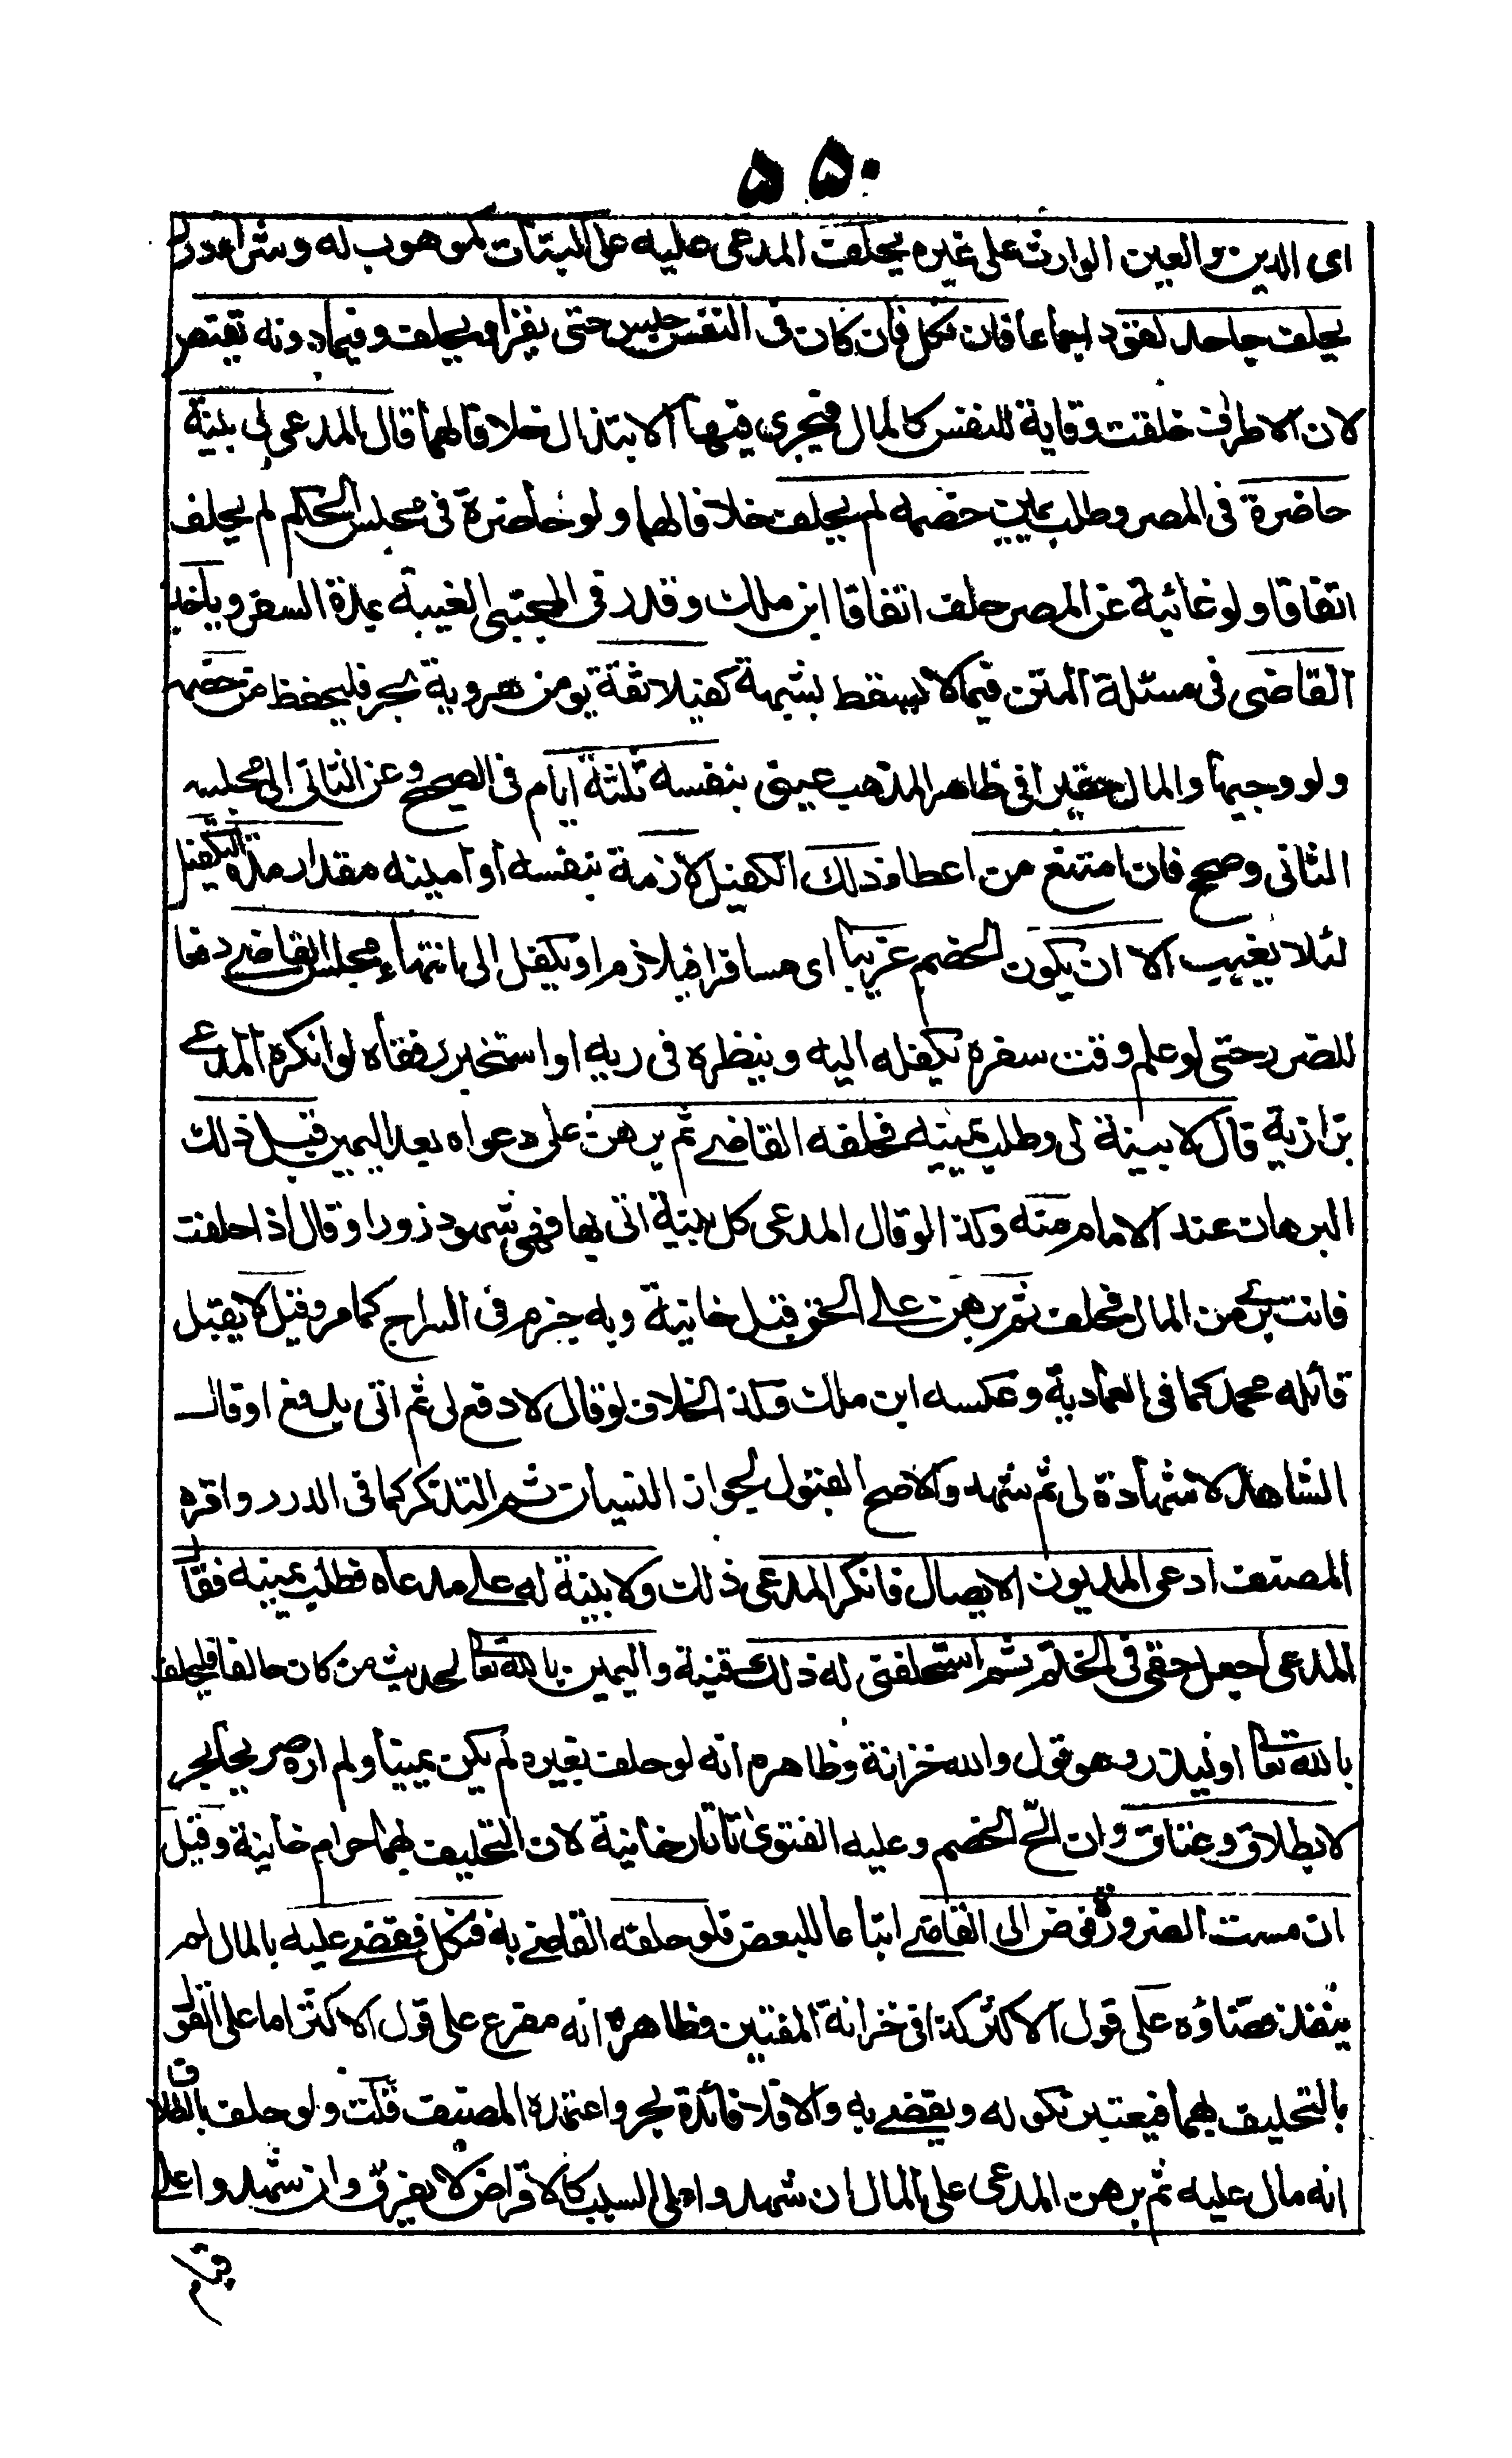 ٥٥٠
اى الدين والعين الوارث على غيره يحلف المدعى عليه على البتات كموهوب له وشراء درر
يحلف جاحد لقود اجماعا فان نكل فان كان فى النفس حبس حتى يقر او يحلف وفيما دونه يقتص
لان الاطراف خلقت وقاية للنفس كالمال فيجرى فيها الابتذال خلافا لهما قال المدعى لى بينة
حاضرة فى المصر وطلب يمين خصمه لم يحلف خلافا لهما ولو حاضرة فى مجلس الحكم لم يحلف
اتفاقا ولو غائبة عن المصر حلف اتفاقا ابن ملك وقدر فى المجتبى الغيبة بمدة السفر وياخذ
القاضى فى مسئلة المتن فيما لا يسقط بشبهة كفيلا ثقة يومن هروبه بحر فليحفظ من خصمه
ولو وجيها والمال حقيرا فى ظاهر المذهب عينى بنفسه ثلثة ايام فى الصحيح وعن الثانى الى مجلسه
الثانى وصحح فان امتنع من اعطاء ذلك الكفيل لازمه بنفسه او امينه مقدار مدة التكفيل
لئلا يغيب الا ان يكون الخصم غريبا اى مسافرا فيلازم او يكفل الى انتهاء مجلس القاضى دفعا
للضرر حتى لو علم وقت سفره يكفله اليه وينظر فى زيه او استخبر رفقاه لو انكره المدعى
بزازية قال لا بينة لى وطلب يمينه فحلفه القاضى ثم برهن على دعواه بعد اليمين قبل ذلك
البرهان عند الامام منه وكذا لو قال المدعى كل بينة اتى بها فهى شهود زور او قال اذا حلفت
فانت برئ من المال فحلف ثم برهن على الحق قبل خانية وبه جزم فى السراج كما مر وقيل لا يقبل
قائله محمد كما فى العمادية وعكسه ابن ملك وكذا الخلاف لو قال لا دفع لى ثم اتى بدفع او قال
الشاهد لا شهادة لى ثم شهد والاصح القبول لجواز النسيان ثم التذكر كما فى الدرر واقره
المصنف ادعى المديون الايصال فانكر المدعى ذلك ولا بينة له على مدعاه فطلب يمينه فقال
المدعى اجعل حقى فى الختم ثم استحلفنى له ذلك قنية واليمين بالله تعا لحديث من كان حالفا فليحلف
بالله تعا او ليذر وهو قول والله خزانة وظاهره انه لو حلف بغيره لم يكن يمينا ولم اره صريحا بحر
لا بطلاق وعتاق وان الح الخصم وعليه الفتوى تاتارخانية لان التحليف بهما حرام خانية وقيل
ان مست الضرورة فوض الى القاضى اتباعا للبعض فلو حلفه القاضى به فنكل فقضى عليه بالمال لم
ينفذ قضاؤه على قول الاكثر كذا فى خزانة المفتين وظاهره انه مفرع على قول الاكثر اما على القول
بالتحليف بهما فيعتبر نكوله ويقضى به والا فلا فائدة بحر واعتمده المصنف قلت ولو حلف بالطلاق
انه مال عليه ثم برهن المدعى على المال ان شهدوا على السبب كالاقراض لا يفرق وان شهدوا على